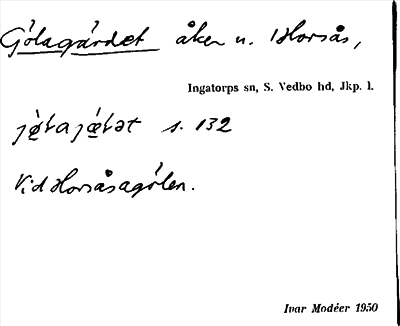 Gölagärdet åker u. Horsås,
Ingatorps sn, S. Vedbo hd, Jkp. l.
s. 132
Vid Horsåsagölen.
Ivar Modéer 1950